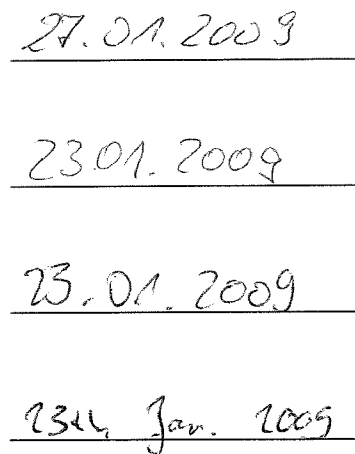 27.01.2009
23.01.2009
23.01.2009
23th Jan. 2009